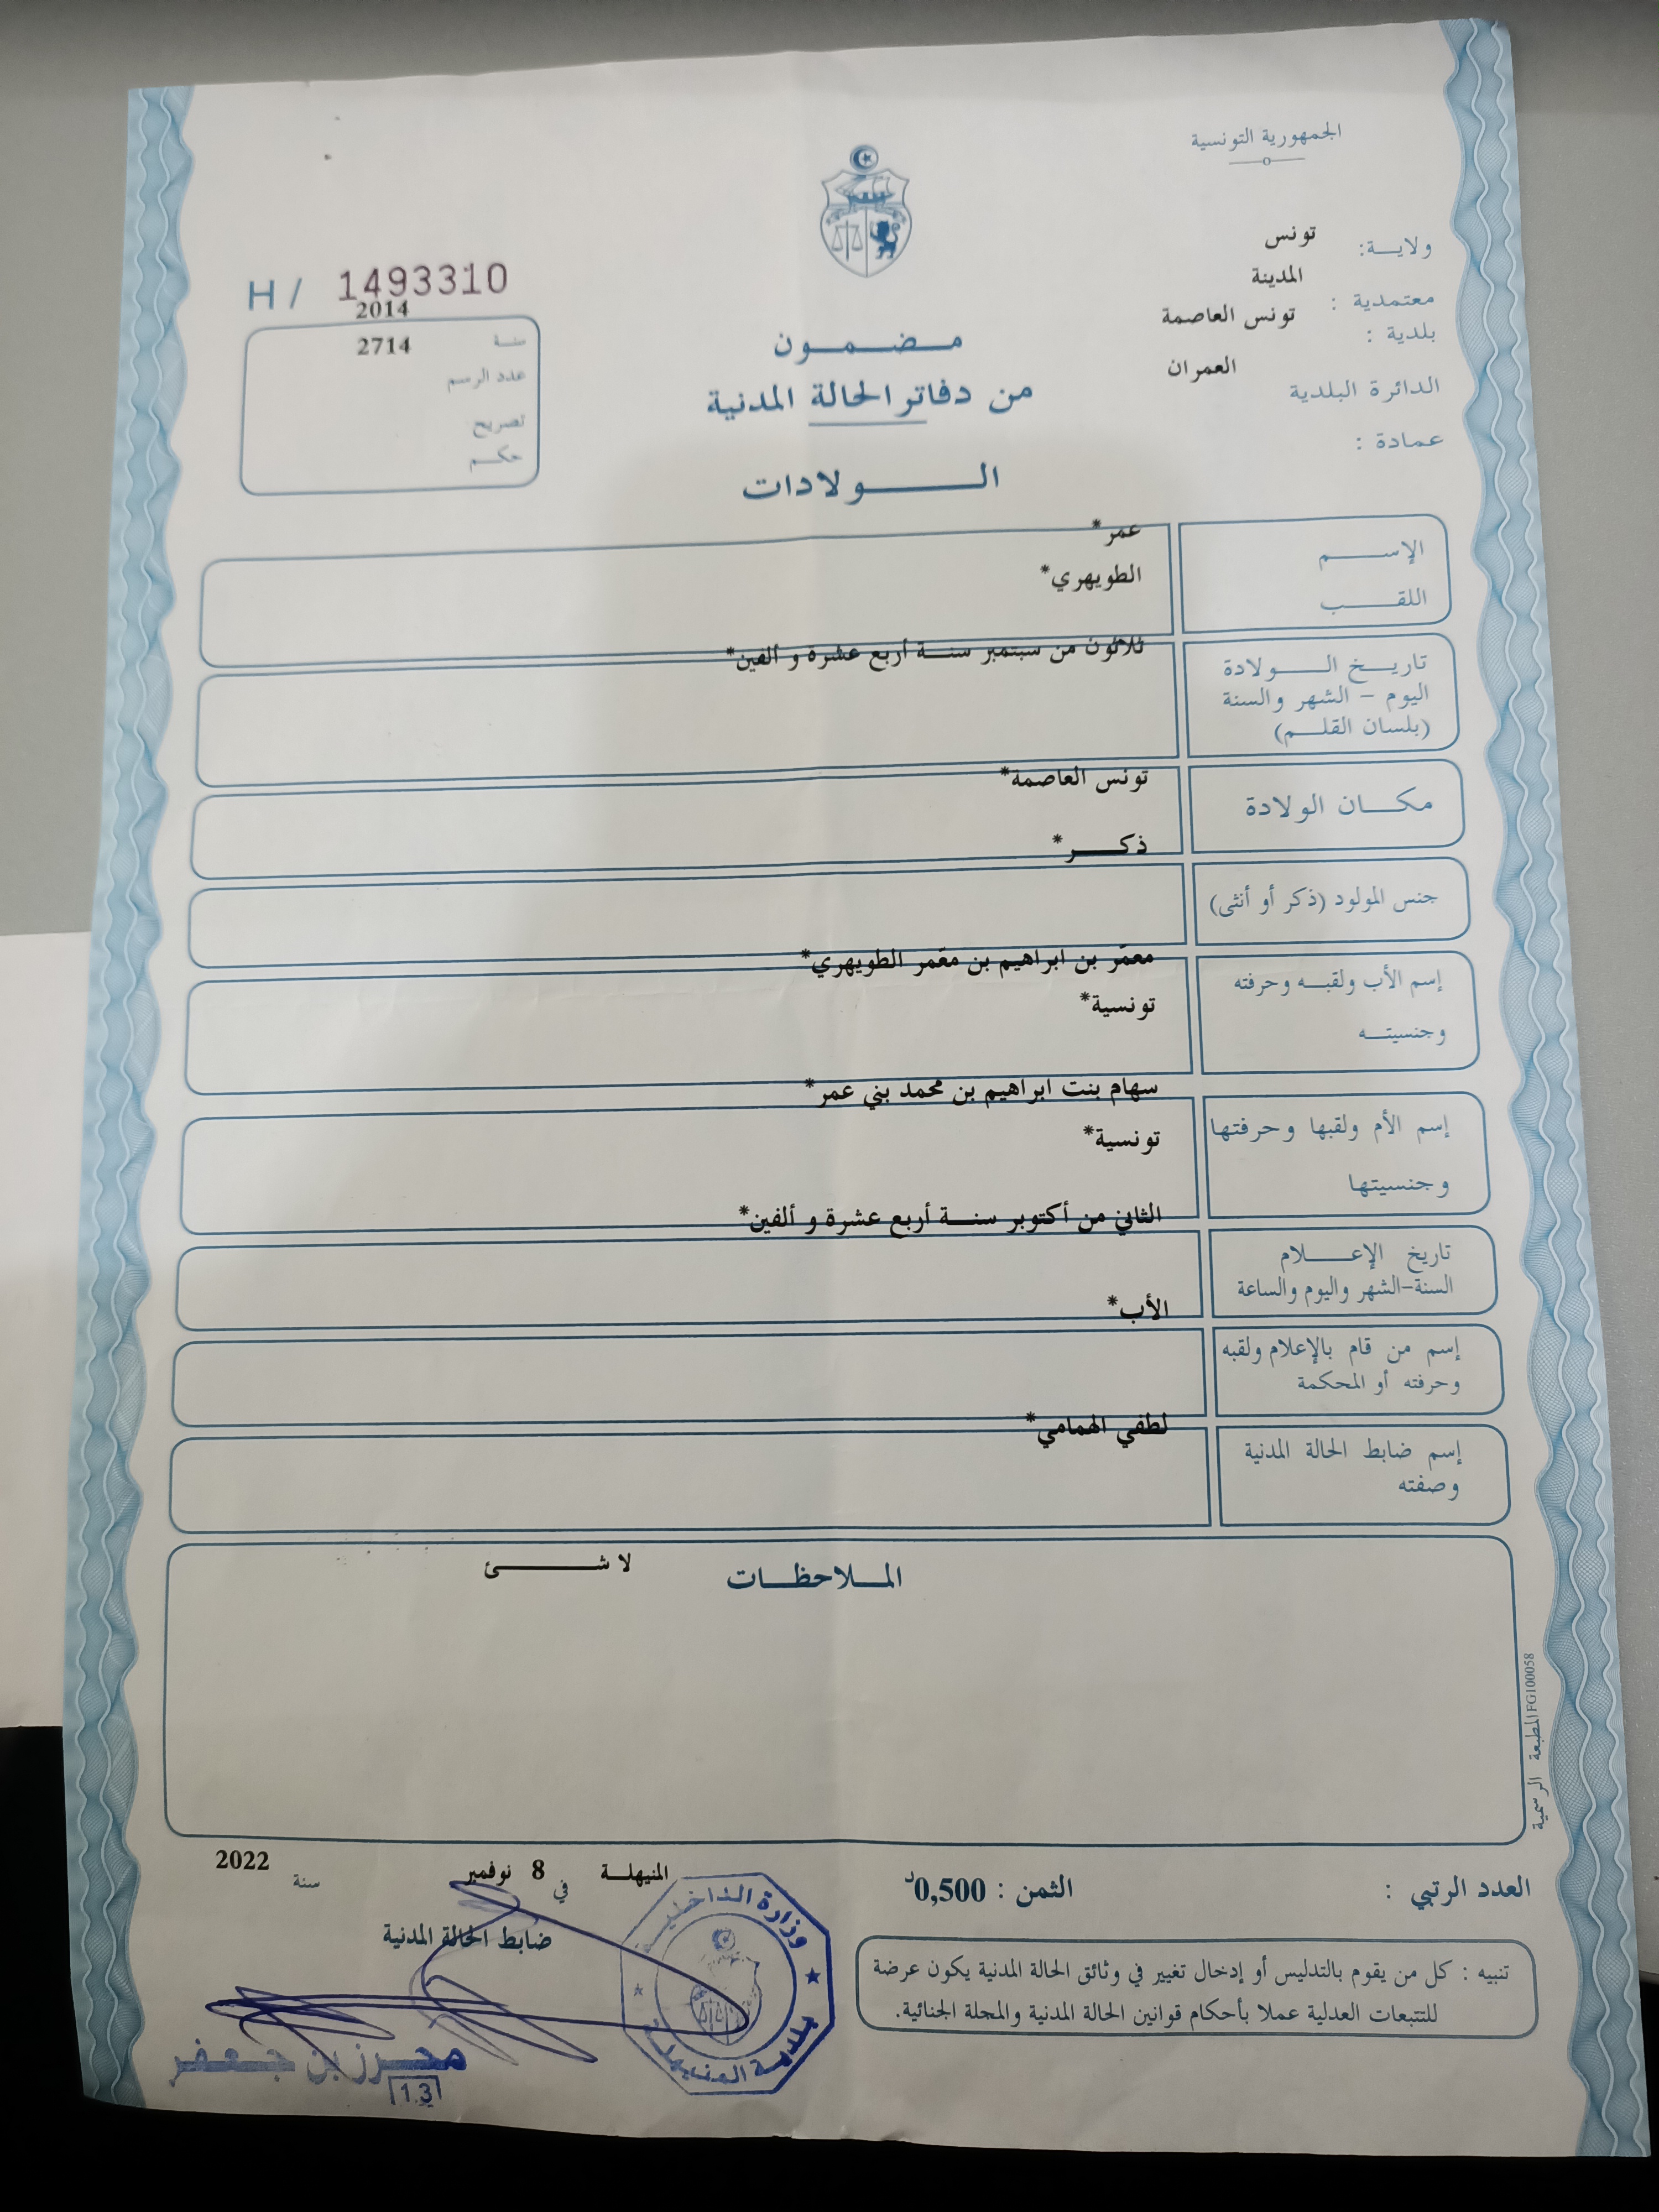 الجمهورية التونسية
ولايـــة: تونس
المدينة
معتمدية :
تونس العاصمة
بلدية :
العمران
الدائرة البلدية
عمادة :
H / 1493310
2014
سنـة
2714
عدد الرسم
تصريح
حكـم
مـضـمـون
من دفاتر الحالة المدنية
الـولادات
الإســـم
عمر*
اللقـــب
الطويهري*
تاريـخ الـــولادة
اليوم - الشهر والسنة
(بلسان القلـم)
ثلاثون من سبتمبر سنـــة أربع عشرة و ألفين*
مكـــان الولادة
تونس العاصمة*
جنس المولود (ذكر أو أنثى)
ذكـــر*
إسم الأب ولقبـه وحرفته
وجنسيتـــه
معمّر بن ابراهيم بن معّمر الطويهري*
تونسية*
إسم الأم ولقبها وحرفتها
وجنسيتها
سهام بنت ابراهيم بن محمد بني عمر*
تونسية*
تاريخ الإعــــلام
السنة-الشهر واليوم والساعة
الثاني من أكتوبر سنـــة أربع عشرة و ألفين*
إسم من قام بالإعلام ولقبه
وحرفته أو المحكمة
الأب*
إسم ضابط الحالة المدنية
وصفته
لطفي الهمامي*
المــلاحظــات
لا شـــئ
المطبعة الرسمية FG100058
العدد الرتبي :
الثمن : 0,500د
المنيهلـــة في 8 نوفمبر سنة 2022
ضابط الحالة المدنية
تنبيه : كل من يقوم بالتدليس أو إدخال تغيير في وثائق الحالة المدنية يكون عرضة
للتتبعات العدلية عملا بأحكام قوانين الحالة المدنية والمجلة الجنائية.
وزارة الداخلية
بلدية المنيهلة
محـرز بن جـعـفـر
13